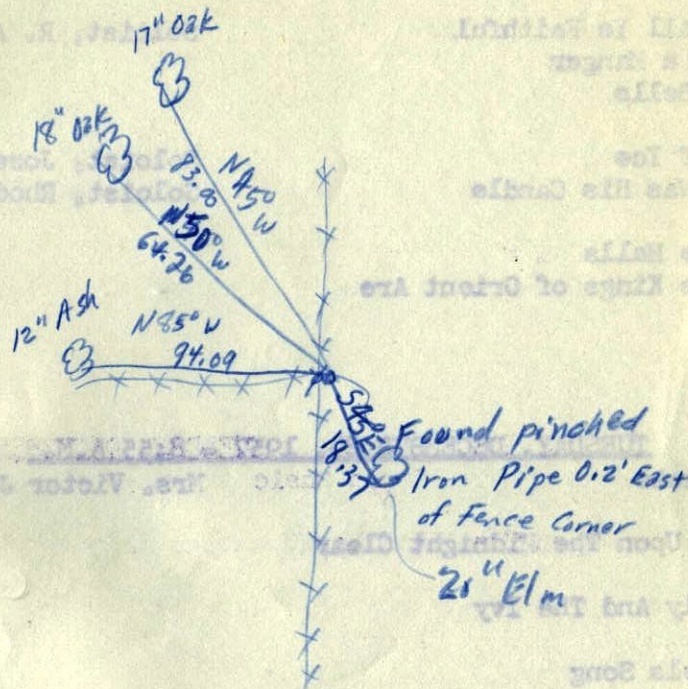 17" Oak
18" Oak
N45°W
83.8
N50°W
64.26
12" Ash
N85°W
94.09
S45°E
18.37
Found pinched
Iron Pipe 0.2' East
of Fence Corner
20" Elm